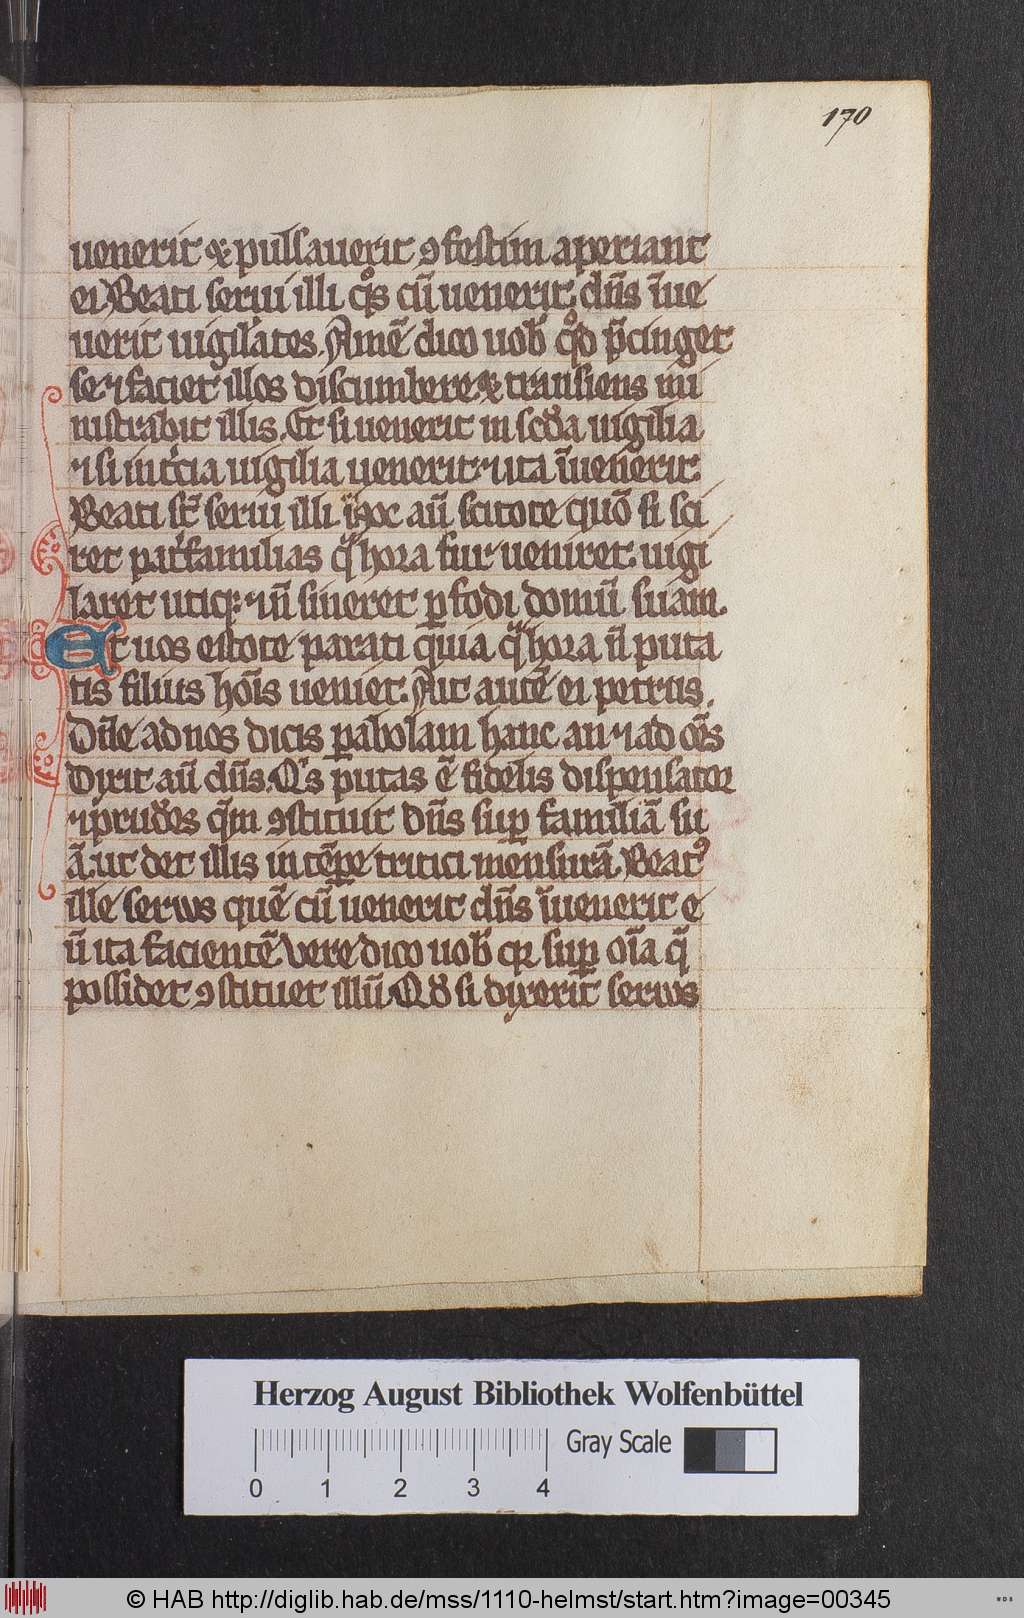 170
uenerit & pulsauerit ꝯfestim aperiant
ei Beati serui illi qͦs cū uenerit dn̄s īue
nerit uigilātes. Amē dico uob̄ qͦd p̄cinget
se ⁊ faciet illos discumbere & transiens mi
nistrabit illis. Et si uenerit in scd̄a uigilia
⁊ si in t̾cia uigilia uenerit ⁊ ita īuenerit
Beati st̄ serui illi hoc aū scitote quō si sci
ret pat̾familias qͣ hora fur ueniret uigi
laret utiqꝫ ⁊ n̄ sineret ꝑfodi domū suam.
Et uos estote parati quia qͣ hora n̄ puta
tis filius hoīs ueniet. Ait autē ei petrus.
Dn̄e ad nos dicis ꝑabolam hanc an ⁊ ad oēs
Dixit aū dn̄s. Qͥs putas ē fidelis dispensator
⁊ prudēs qͣm ꝯstituit dn̄s suꝑ familiā su
ā. ut det illis in tēꝑe tritici mensurā. Beatꝰ
ille seruus quē cū uenerit dn̄s īuenerit e
ū ita facientē Vere dico uob̄ qꝛ suꝑ oīa q̄
possidet ꝯstituet illū Qd̄ si dixerit seruus
Herzog August Bibliothek Wolfenbüttel
Gray Scale
0 1 2 3 4
© HAB http://diglib.hab.de/mss/1110-helmst/start.htm?image=00345